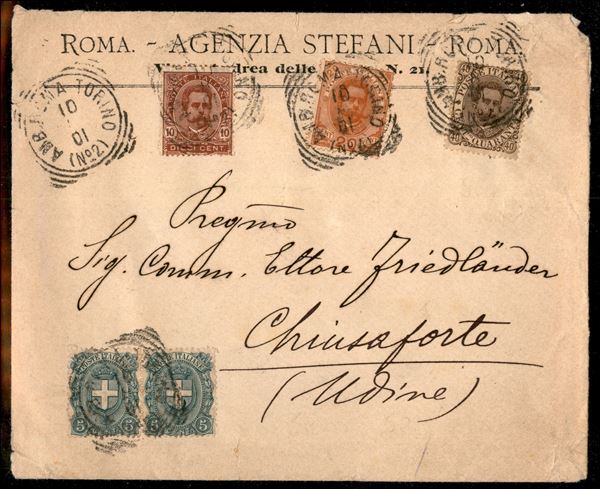 ROMA. - AGENZIA STEFANI - ROMA.
delle N. 21.
AMB. ROMA TORINO
10
01
(No2)
POSTE ITALIANE
10 10
DIECI CENT.
AMB. ROMA TORINO
10
01
(No2)
POSTE ITALIANE
40 QUARANTA 40
Pregmo
Sig. Comm. Ettore Friedländer
Chiusaforte
(Udine)
POSTE ITALIANE POSTE ITALIANE
5 5 5 5